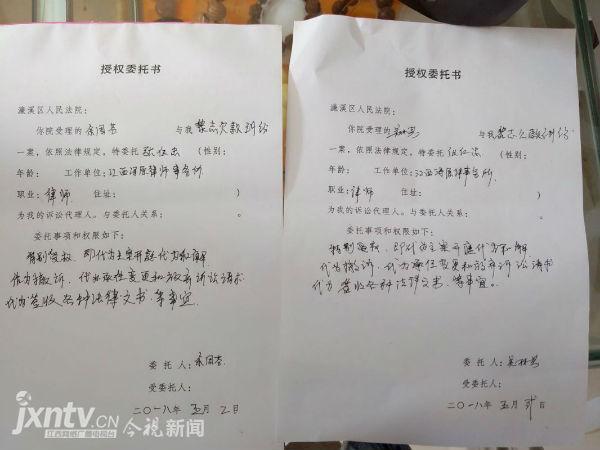 授权委托书
濂溪区人民法院:
你院受理的 余国善 与我 欠款纠纷
一案,依照法律规定,特委托 (性别:
年龄: 工作单位:江西浔原律师事务所
职业:律师 住址: 。
为我的诉讼代理人。与委托人关系: 。
委托事项和权限如下:
特别授权,即代为主章开庭代为和解
作为撤诉、代为承任变更和放弃诉讼请求
代为签收各种法律文书、等事宜
委托人:余国善
受委托人:
二○一八年 五月 2 日
授权委托书
濂溪区人民法院:
你院受理的 与我 欠款纠纷
一案,依照法律规定,特委托 (性别:
年龄: 工作单位:江西浔原律师事务所
职业:律师 住址: 。
为我的诉讼代理人。与委托人关系: 。
委托事项和权限如下:
特别授权,即代为主章开庭代为和解
代为撤诉、代为承任变更和放弃诉讼请求
代为签收各种法律文书、等事宜。
委托人:
受委托人:
二○一八年 五月 日
jxntv.CN 今视新闻
江西网络广播电视台